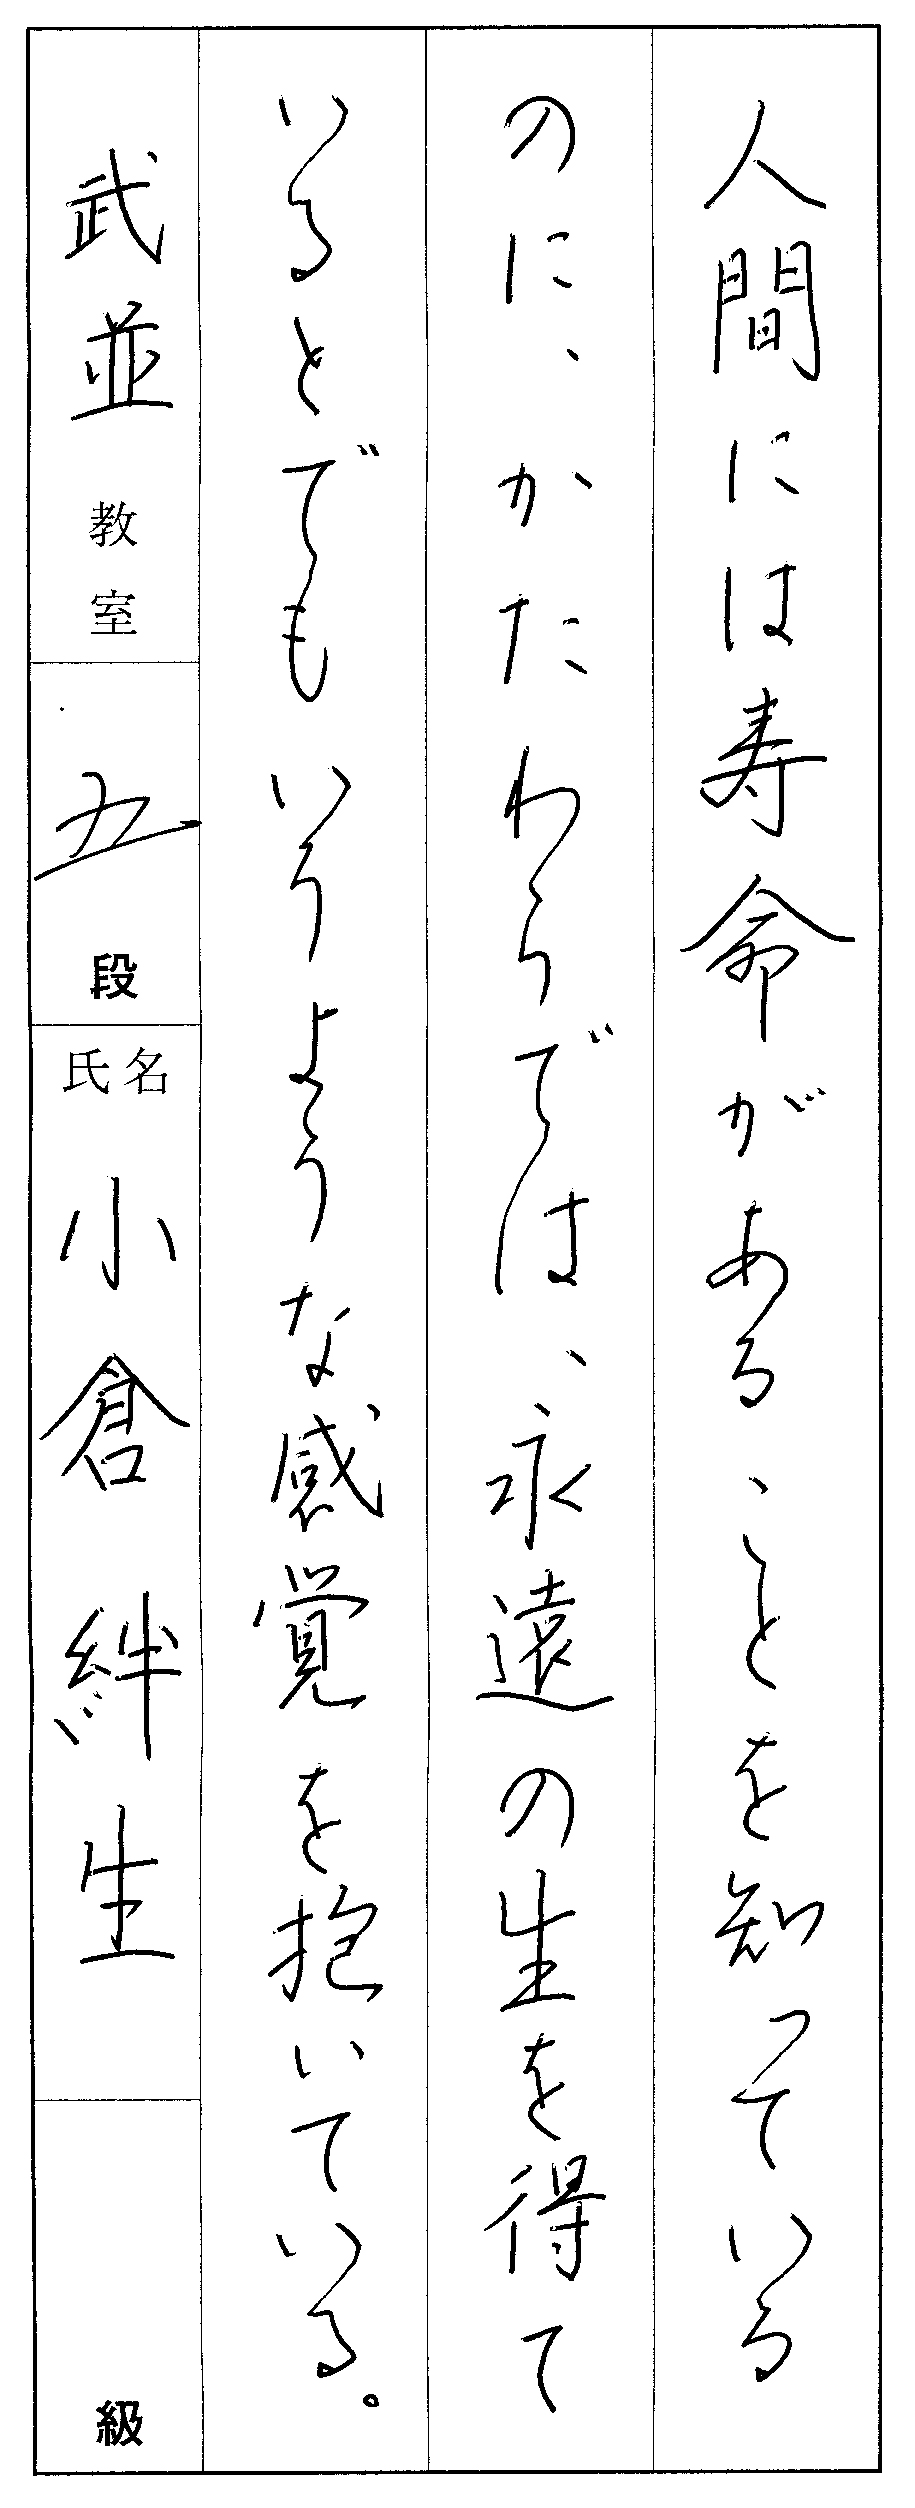 人間には寿命があることを知っている
のに、かたわらでは、永遠の生を得て
いるとでもいうような感覚を抱いている。
武並教室
五段
氏名
小倉絆生
級